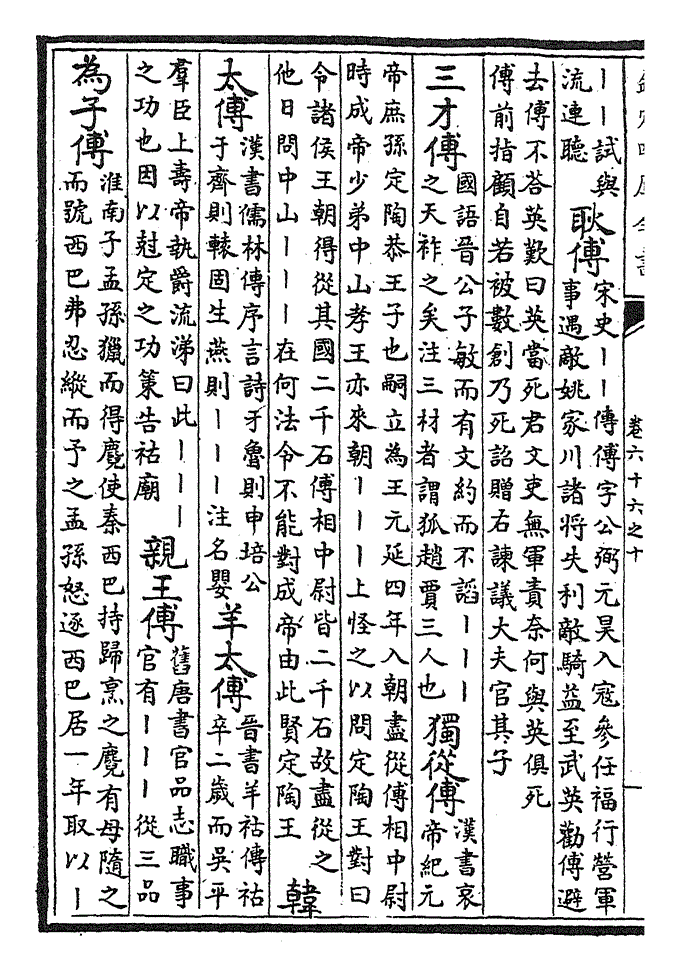 卷六十六之十
丨丨試與
流連聽
耿傅
宋史丨丨傳傅字公弼元昊入寇參任福行營軍
事遇敵姚家川諸將失利敵騎益至武英勸傅避
去傅不荅英歎曰英當死君文吏無軍責奈何與英俱死
傅前指顧自若被數創乃死詔贈右諫議大夫官其子
三才傅
國語晉公子敏而有文約而不謟丨丨丨
之天祚之矣注三材者謂狐趙賈三人也
獨從傅
漢書哀
帝紀元
帝庶孫定陶恭王子也嗣立為王元延四年入朝盡從傅相中尉
時成帝少弟中山孝王亦來朝丨丨丨上怪之以問定陶王對曰
令諸侯王朝得從其國二千石傅相中尉皆二千石故盡從之
他日問中山丨丨丨在何法令不能對成帝由此賢定陶王
韓
太傅
漢書儒林傳序言詩於魯則申培公
于齊則轅固生燕則丨丨丨注名嬰
羊太傅
晉書羊祜傳祜
卒二歲而吳平
羣臣上壽帝執爵流涕曰此丨丨丨
之功也因以尅定之功策告祜廟
親王傅
舊唐書官品志職事
官有丨丨丨從三品
為子傅
淮南子孟孫獵而得麑使秦西巴持歸烹之麑有母隨之
而號西巴弗忍縱而予之孟孫怒逐西巴居一年取以丨